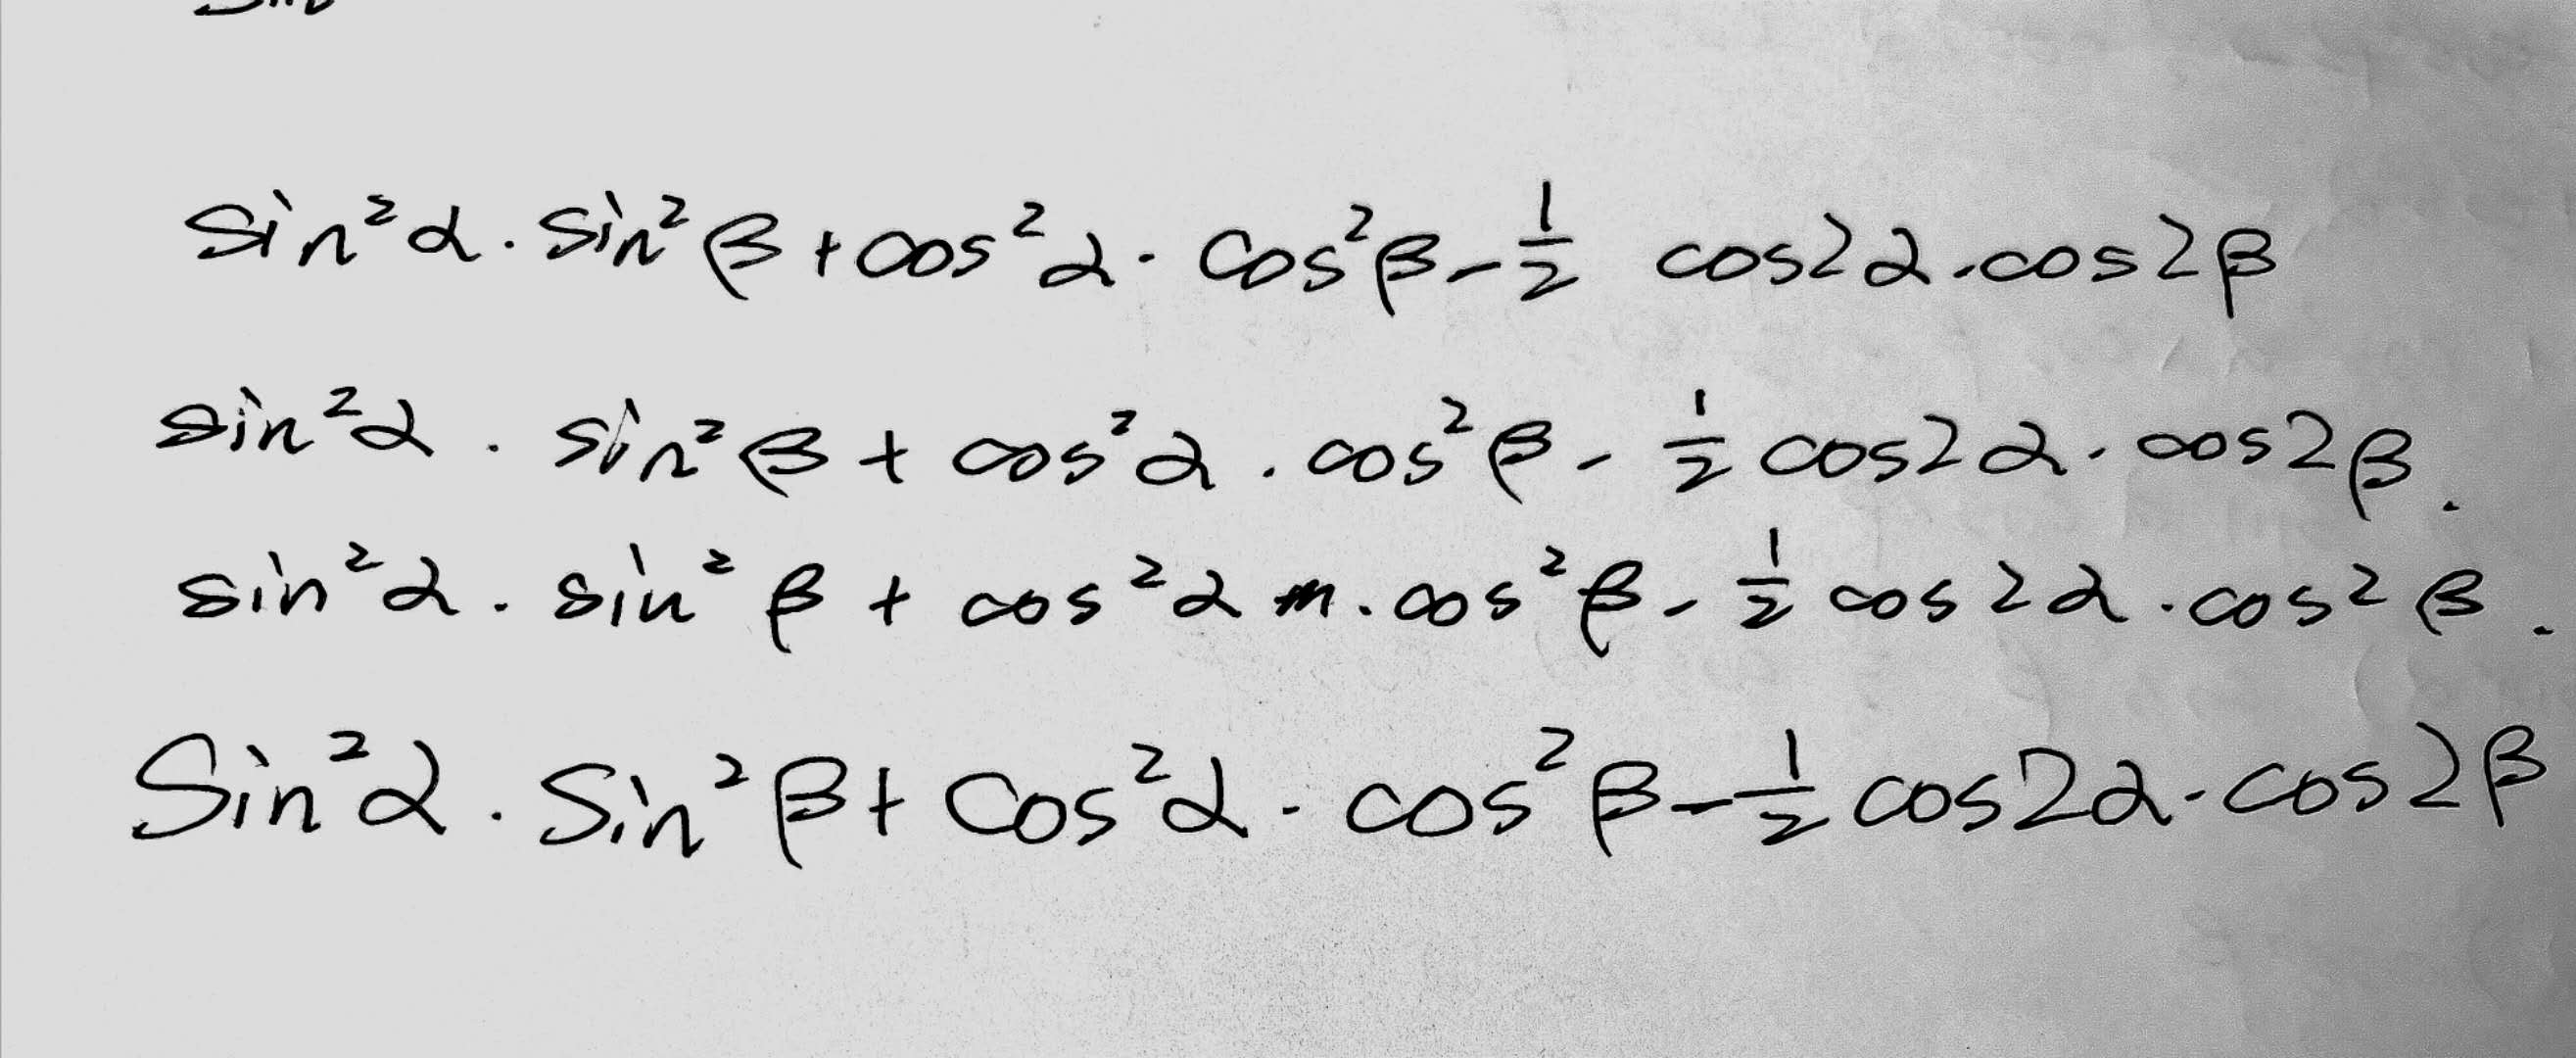 sin²α·sin²β+cos²α·cos²β-1/2 cos2α·cos2β
sin²α·sin²β+cos²α·cos²β-1/2 cos2α·cos2β.
sin²α·sin²β+cos²α·cos²β-1/2 cos2α·cos2β.
Sin²α·Sin²β+Cos²α·cos²β-1/2 cos2α·cos2β